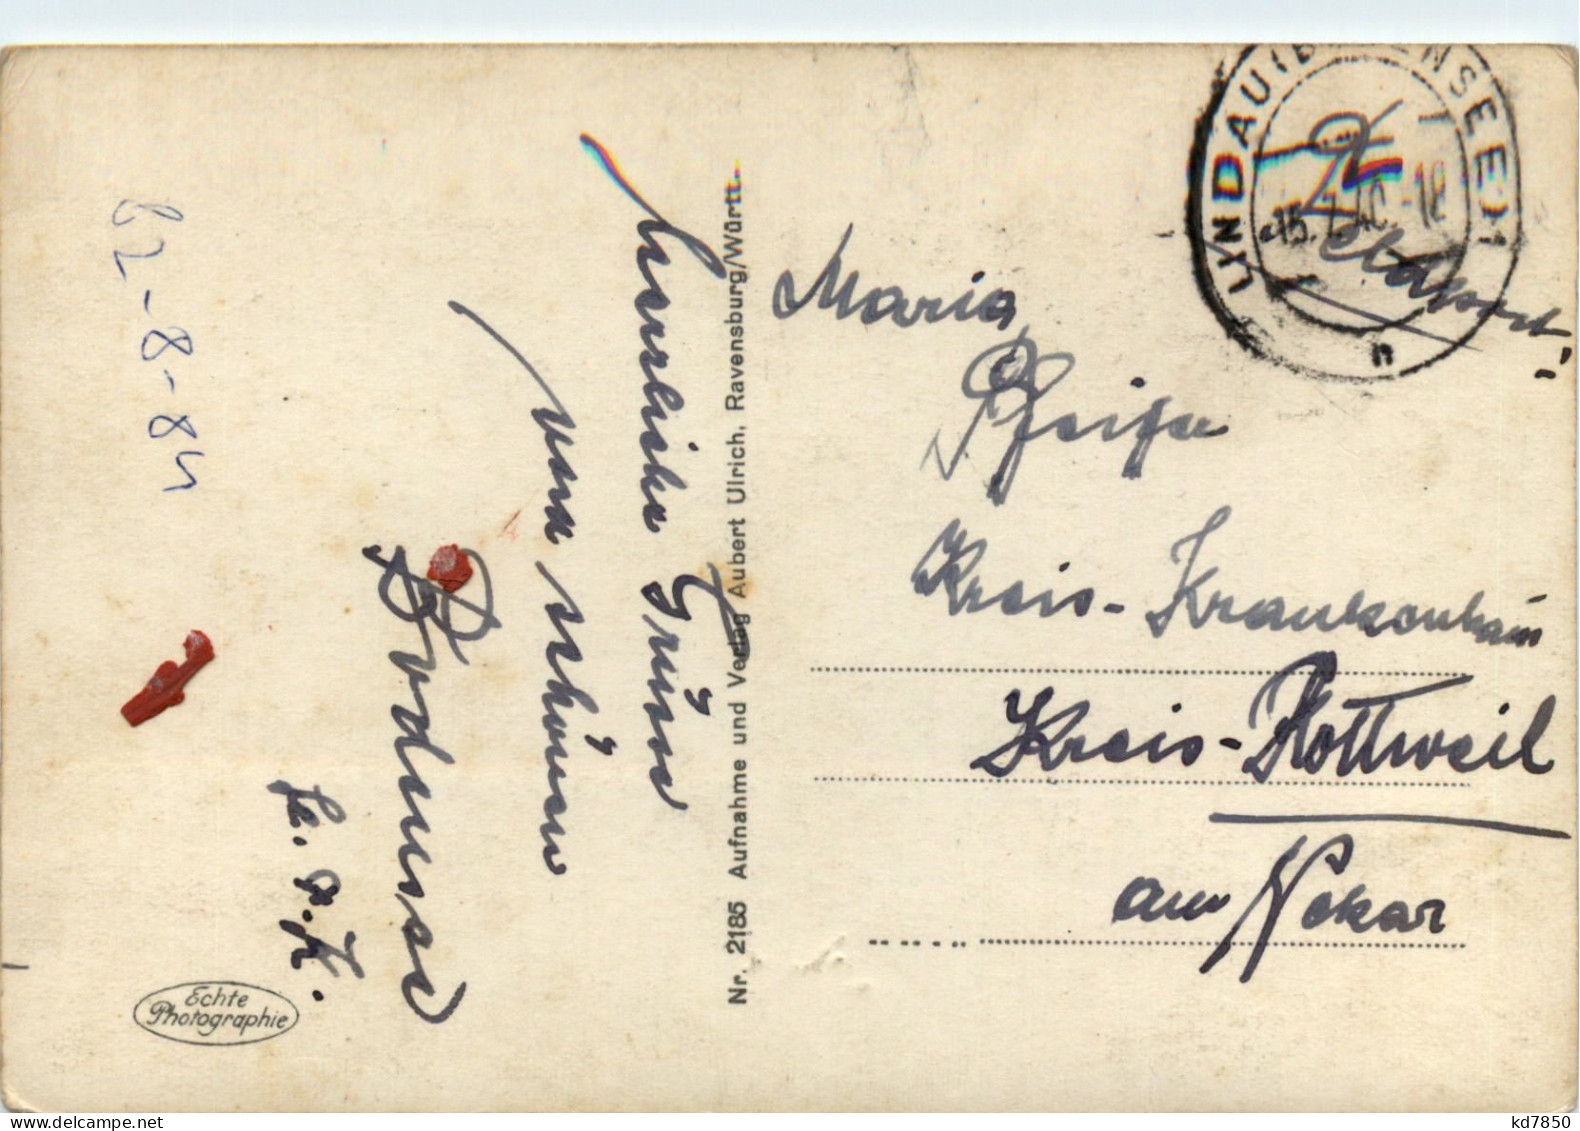 82-8-84
Herzliche Grüsse
vom schönen
Bodensee
Echte
Photographie
Nr. 2185 Aufnahme und Verlag Aubert Ulrich, Ravensburg/Württ.
LINDAU (BODENSEE)
-18
n
Feldpost
Maria
Pfeifer
Kreis-Krankenhaus
Kreis-Rottweil
am Nekar
kd7850